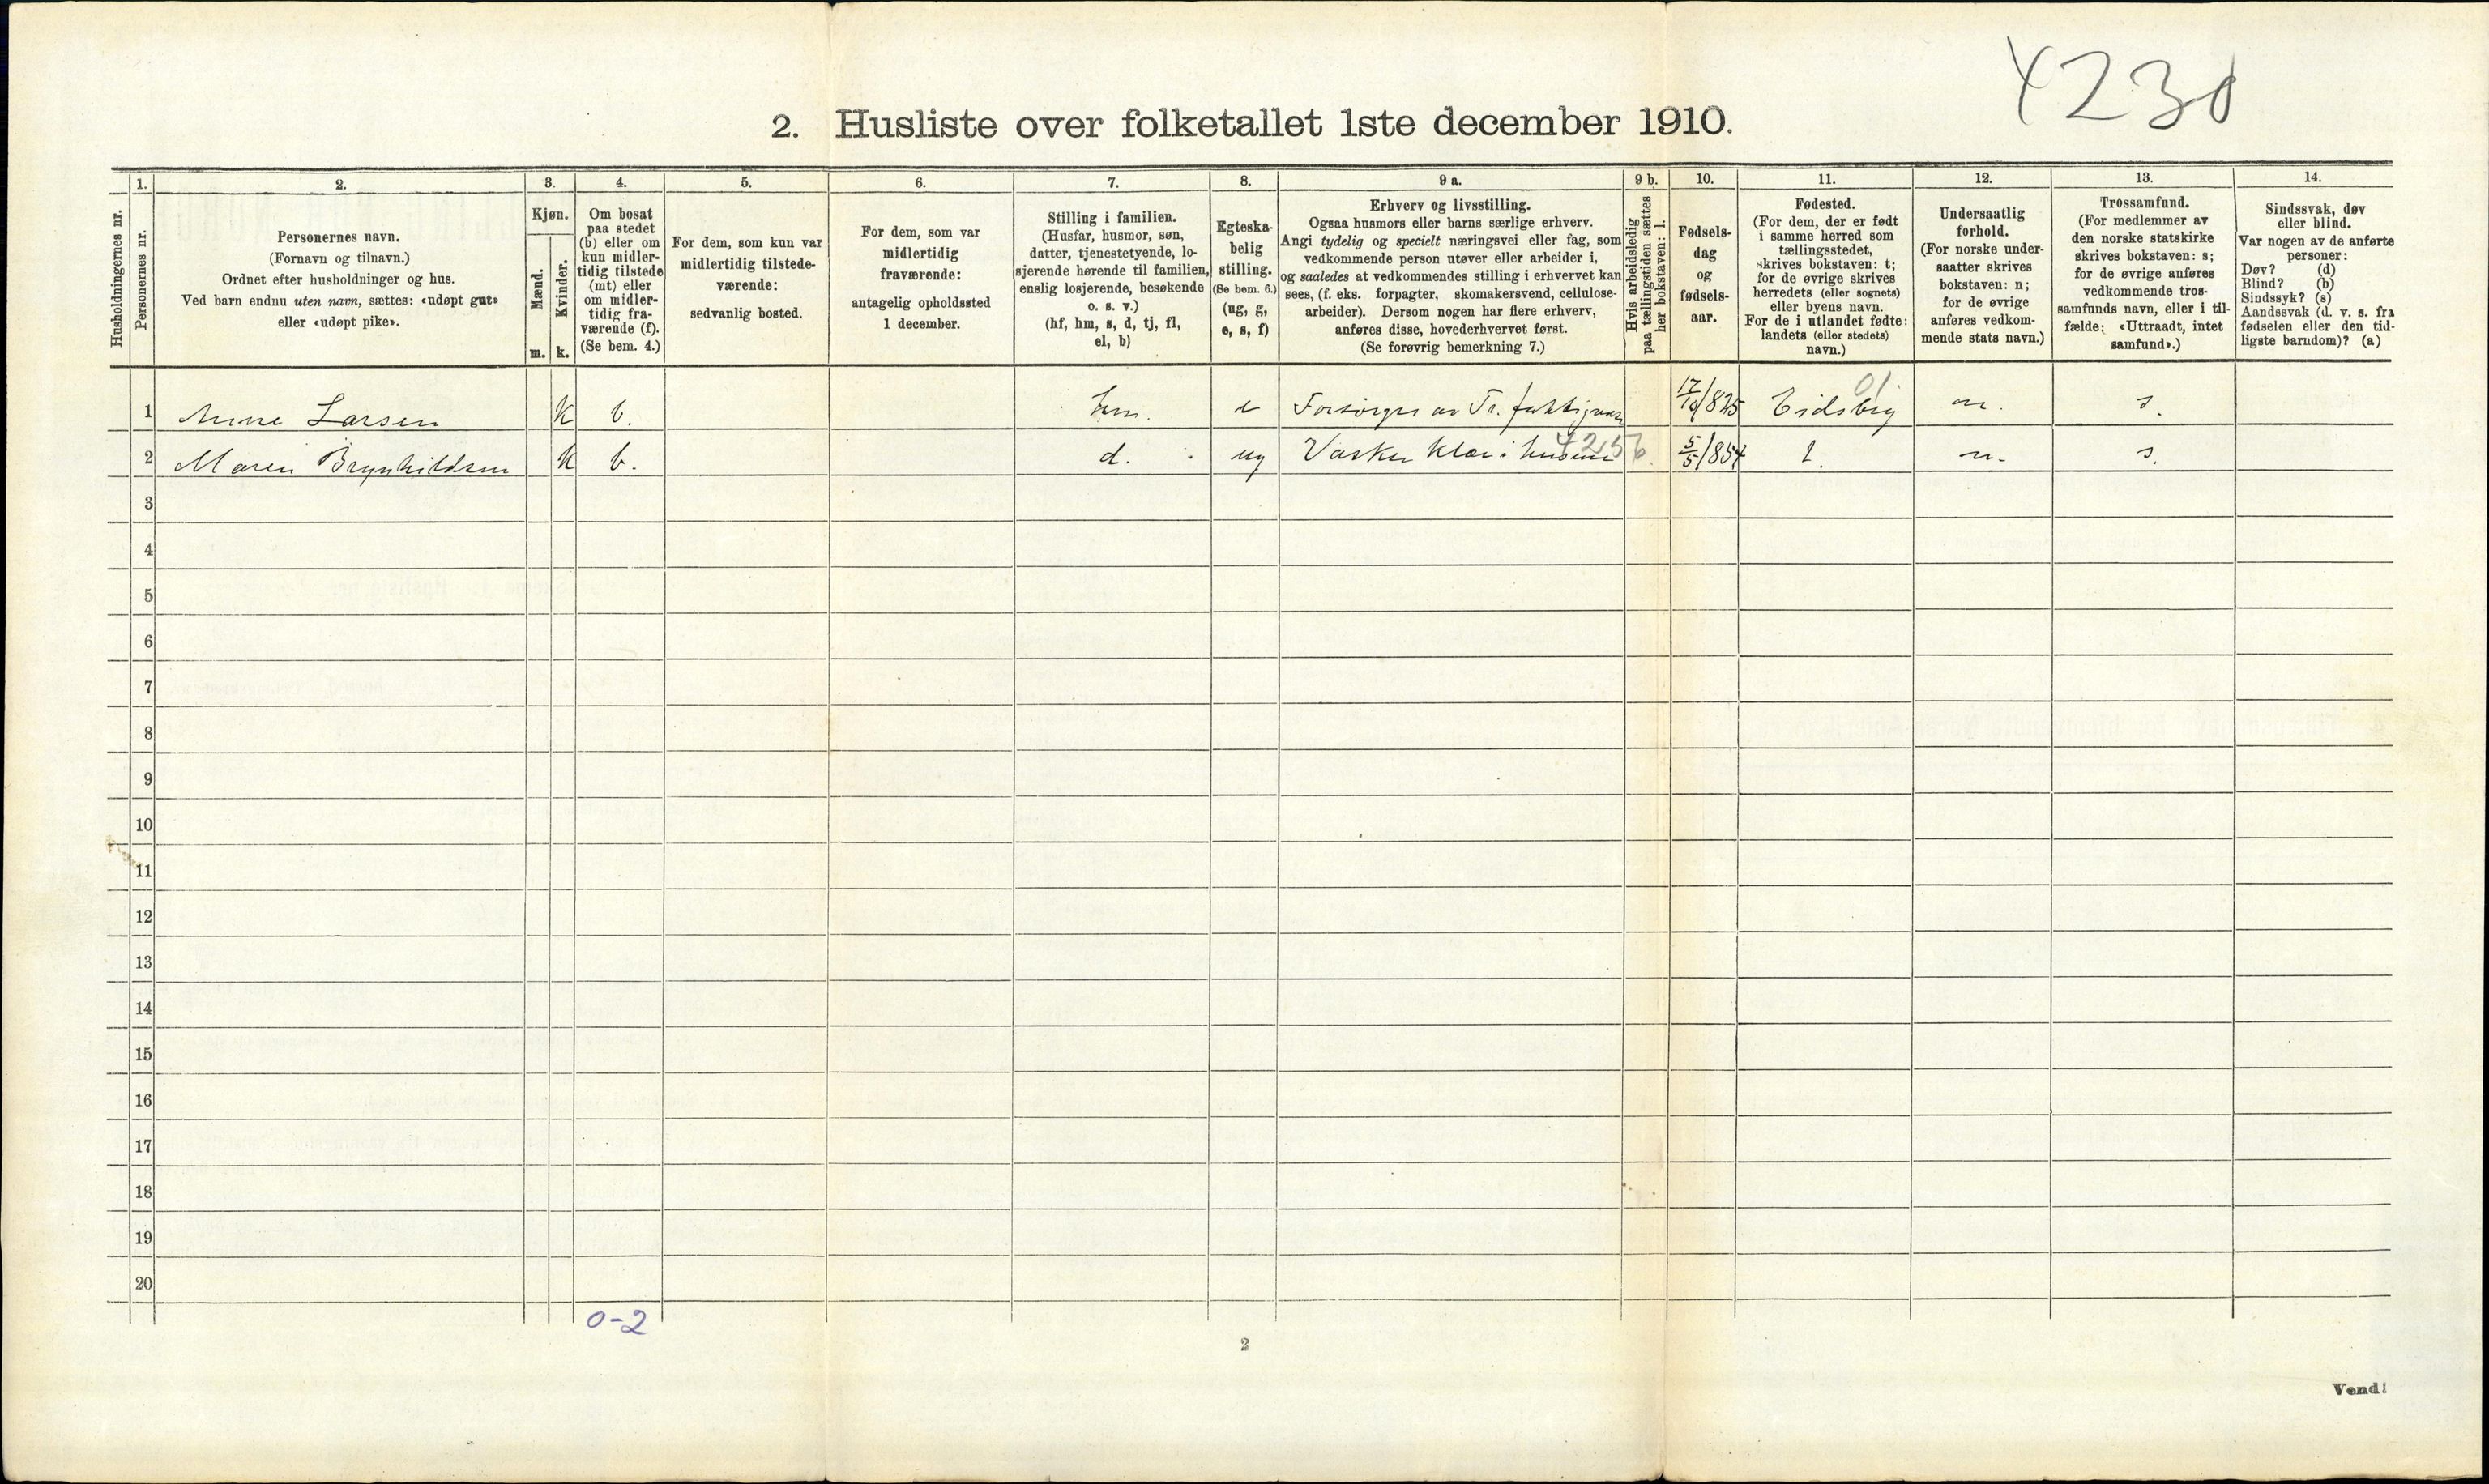 4230
2. Husliste over folketallet 1ste december 1910.
Husholdningernes nr.
1.
Personernes nr.
2.
Personernes navn.
(Fornavn og tilnavn.)
Ordnet efter husholdninger og hus.
Ved barn endnu uten navn, sættes: «udøpt gut»
eller «udøpt pike».
3.
Kjøn.
Mænd.
Kvinder.
m. k.
4.
Om bosat
paa stedet
(b) eller om
kun midler-
tidig tilstede
(mt) eller
om midler-
tidig fra-
værende (f).
(Se bem. 4.)
5.
For dem, som kun var
midlertidig tilstede-
værende:
sedvanlig bosted.
6.
For dem, som var
midlertidig
fraværende:
antagelig opholdssted
1 december.
7.
Stilling i familien.
(Husfar, husmor, søn,
datter, tjenestetyende, lo-
sjerende hørende til familien,
enslig losjerende, besøkende
o. s. v.)
(hf, hm, s, d, tj, fl,
el, b)
8.
Egteska-
belig
stilling.
(Se bem. 6.)
(ug, g,
e, s, f)
9 a.
Erhverv og livsstilling.
Ogsaa husmors eller barns særlige erhverv.
Angi tydelig og specielt næringsvei eller fag, som
vedkommende person utøver eller arbeider i,
og saaledes at vedkommendes stilling i erhvervet kan
sees, (f. eks. forpagter, skomakersvend, cellulose-
arbeider). Dersom nogen har flere erhverv,
anføres disse, hovederhvervet først.
(Se forøvrig bemerkning 7.)
9 b.
Hvis arbeidsledig
paa tællingstiden sættes
her bokstaven: l.
10.
Fødsels-
dag
og
fødsels-
aar.
11.
Fødested.
(For dem, der er født
i samme herred som
tællingsstedet,
skrives bokstaven: t;
for de øvrige skrives
herredets (eller sognets)
eller byens navn.
For de i utlandet fødte:
landets (eller stedets)
navn.)
12.
Undersaatlig
forhold.
(For norske under-
saatter skrives
bokstaven: n;
for de øvrige
anføres vedkom-
mende stats navn.)
13.
Trossamfund.
(For medlemmer av
den norske statskirke
skrives bokstaven: s;
for de øvrige anføres
vedkommende tros-
samfunds navn, eller i til-
fælde: «Uttraadt, intet
samfund».)
14.
Sindssvak, døv
eller blind.
Var nogen av de anførte
personer:
Døv? (d)
Blind? (b)
Sindssyk? (s)
Aandssvak (d. v. s. fra
fødselen eller den tid-
ligste barndom)? (a)
01.
1 Anne Larsen K b. hm. e Forsørges av Tr. fattigvæs 12/825 Eidsberg n. s.
4256.
2 Maren Brynhildsen K b. d. ug Vasker klær i husene 5/5/854 t. n. s.
3
4
5
6
7
8
9
10
11
12
13
14
15
16
17
18
19
20
0-2
2
Vend!